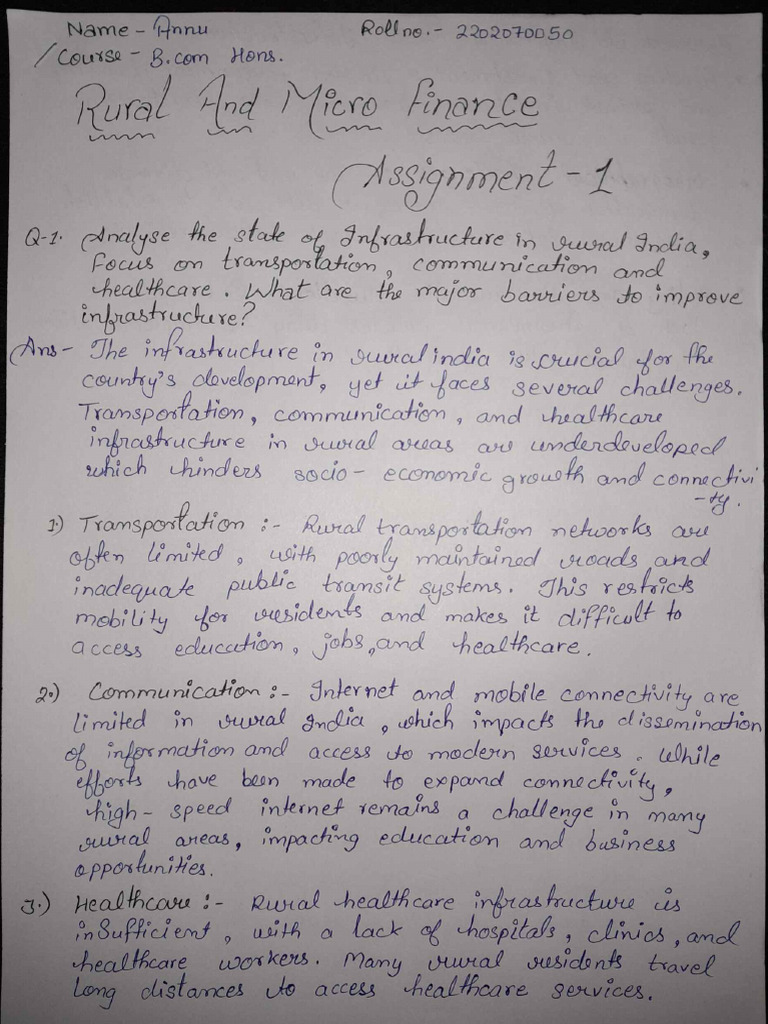 Name - Annu Roll no. - 2202070050
Course - B.com Hons.
Rural And Micro Finance
Assignment - 1.
Q-1. Analyse the state of Infrastructure in rural India,
Focus on transportation, communication and
healthcare. What are the major barriers to improve
infrastructure?
Ans- The infrastructure in rural india is crucial for the
country's development, yet it faces several challenges.
Transportation, communication, and healthcare
infrastructure in rural areas are underdeveloped
which hinders socio-economic growth and connectivi
-ty.
1.) Transportation :- Rural transportation networks are
often limited, with poorly maintained roads and
inadequate public transit systems. This restricts
mobility for residents and makes it difficult to
access education, jobs, and healthcare.
2.) Communication :- Internet and mobile connectivity are
limited in rural India, which impacts the dissemination
of information and access to modern services. While
efforts have been made to expand connectivity,
high-speed internet remains a challenge in many
rural areas, impacting education and business
opportunities.
3.) Healthcare :- Rural healthcare infrastructure is
insufficient, with a lack of hospitals, clinics, and
healthcare workers. Many rural residents travel
long distances to access healthcare services.